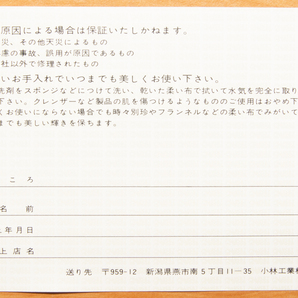 原因による場合は保証いたしかねます。
災、その他天災によるもの
慮の事故、誤用が原因であるもの
社以外で修理されたもの
いお手入れでいつまでも美しくお使い下さい。
洗剤をスポンジなどにつけて洗い、乾いた柔い布で拭いて水気を完全に取り
さい。クレンザーなど製品の肌を傷つけるようなもののご使用はおやめ下
くお使いにならない場合でも時々別珍やフランネルなどの柔い布でみがいて
までも美しい輝きを保ちます。
ころ
名前
年月日
上店名
送り先 〒959-12 新潟県燕市南5丁目11-35 小林工業